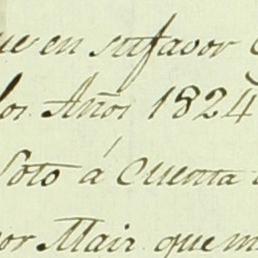 ue en su favor
los Años 1824
Soto á Cuenta
por Mair que m